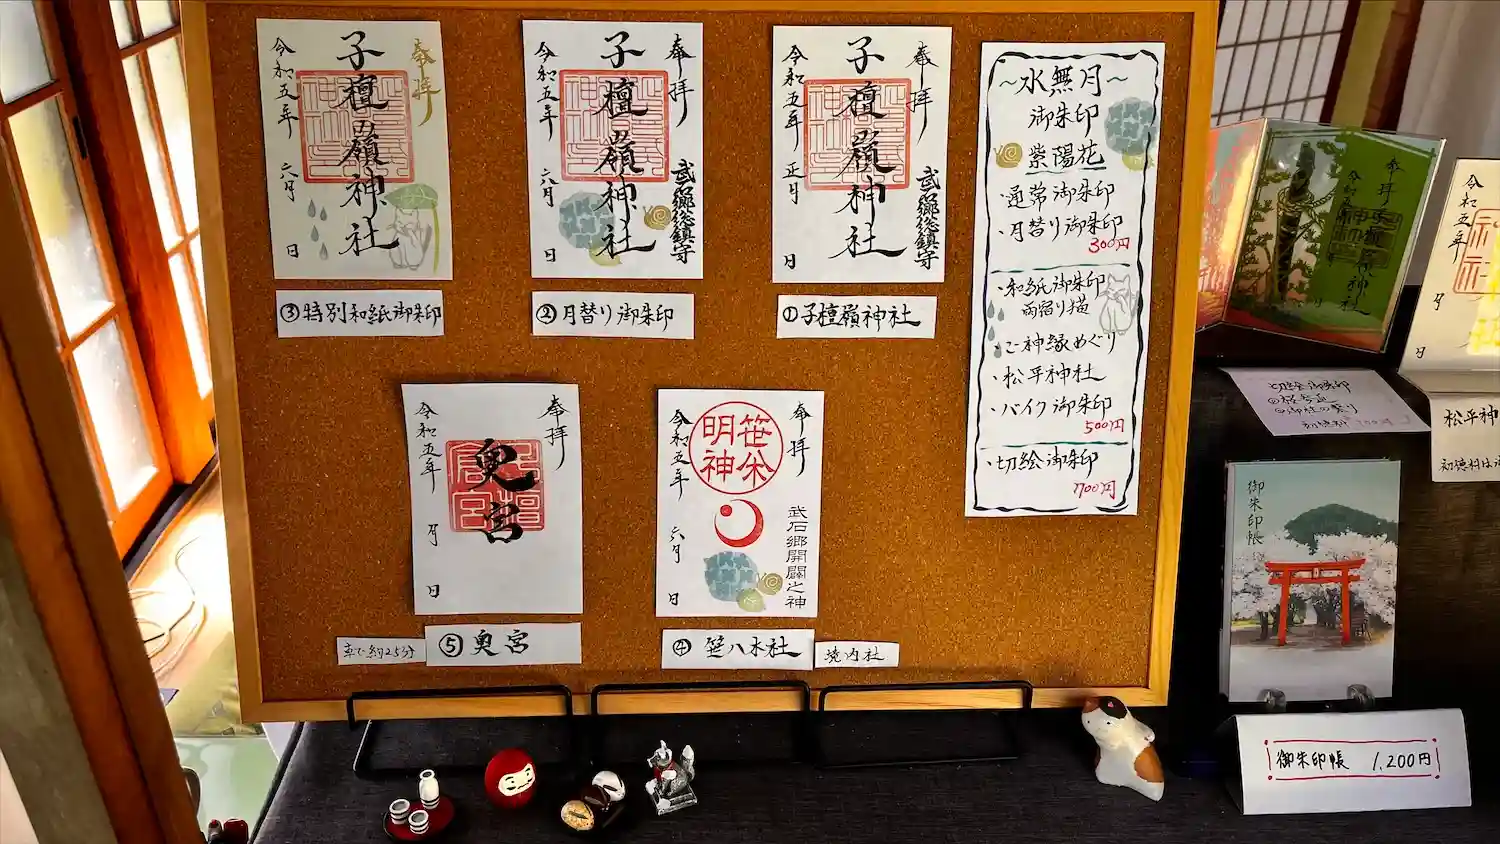 奉拝
子檀嶺神社
令和五年
六月
日
③特別和紙御朱印
奉拝
武郷総鎮守
子檀嶺神社
令和五年
六月
日
②月替り御朱印
奉拝
武郷総鎮守
子檀嶺神社
令和五年
正月
日
①子檀嶺神社
～水無月～
御朱印
紫陽花
・通常御朱印
・月替り御朱印
300円
・和紙御朱印
雨宿り猫
・ご神縁めぐり
・松平神社
・バイク御朱印
500円
・切絵御朱印
700円
奉拝
奥宮
令和五年
月
日
⑤奥宮
車で約25分
奉拝
武石郷開闢之神
笹焱
明神
令和五年
六月
日
④笹八木社
境内社
奉拝
神社
令和五年
月
日
切絵御朱印
松平神
御朱印帳
御朱印帳 1,200円